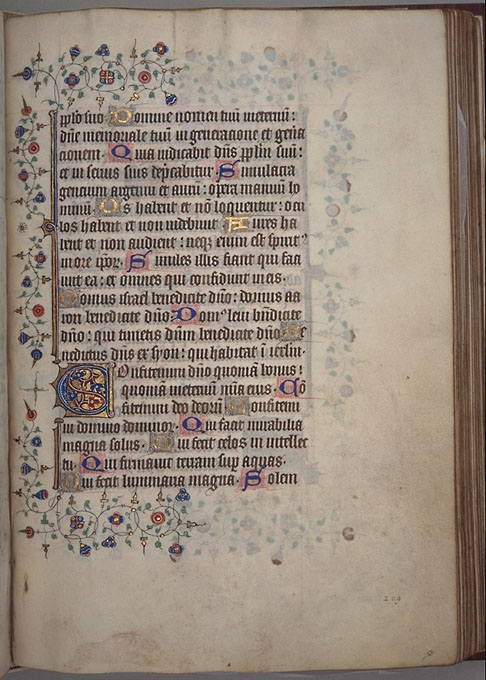 pplo suo Domine nomen tuū in eternū:
dñe memoriale tuū in generacione et genera
cionem. Quia iudicabit dñs pplm suū:
et in seruis suis dep̄cabitur. Simulacra
gencium argentū et aurū: opera manuū ho
minū. Os habent et nō loquentur: ocu
los habent et non uidebunt. Aures ha
bent et non audient: neq; enim est spiritꝰ
in ore ip̄oꝝ. Similes illis fiant qui faci
unt ea: et omnes qui confidunt in eis.
Domus israel benedicite dño: domus aa
ron benedicite dño. Domꝰ leui bn̄dicite
dño: qui timetis dñm benedicite dño. Be
nedictus dñs ex syon: qui habitat ī ierl̄m.
Confitemini dño quoniā bonus:
quoniā in eternū mīa eius. Cō
fitemini deo deorū. Confitemini
domino dominoꝝ. Qui facit mirabilia
magna solus. Qui fecit celos in intellec
tu. Qui firmauit terram sup aquas.
Qui fecit luminaria magna. Solem
204